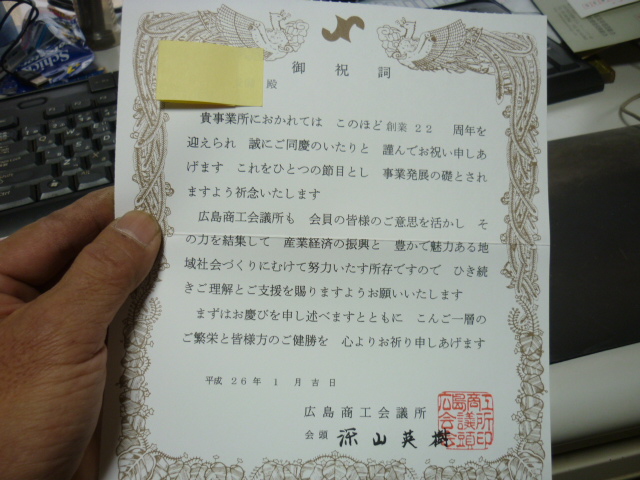 御祝詞
殿
貴事業所におかれては このほど 創業 22 周年を
迎えられ 誠にご同慶のいたりと 謹んでお祝い申しあ
げます これをひとつの節目とし 事業発展の礎とされ
ますよう祈念いたします
広島商工会議所も 会員の皆様のご意思を活かし そ
の力を結集して 産業経済の振興と 豊かで魅力ある地
域社会づくりにむけて努力いたす所存ですので ひき続
きご理解とご支援を賜りますようお願いいたします
まずはお慶びを申し述べますとともに こんご一層の
ご繁栄と皆様方のご健勝を 心よりお祈り申しあげます
平成 26年 1月吉日
広島商工会議所
会頭 深山英樹
広島商工会議所会頭印